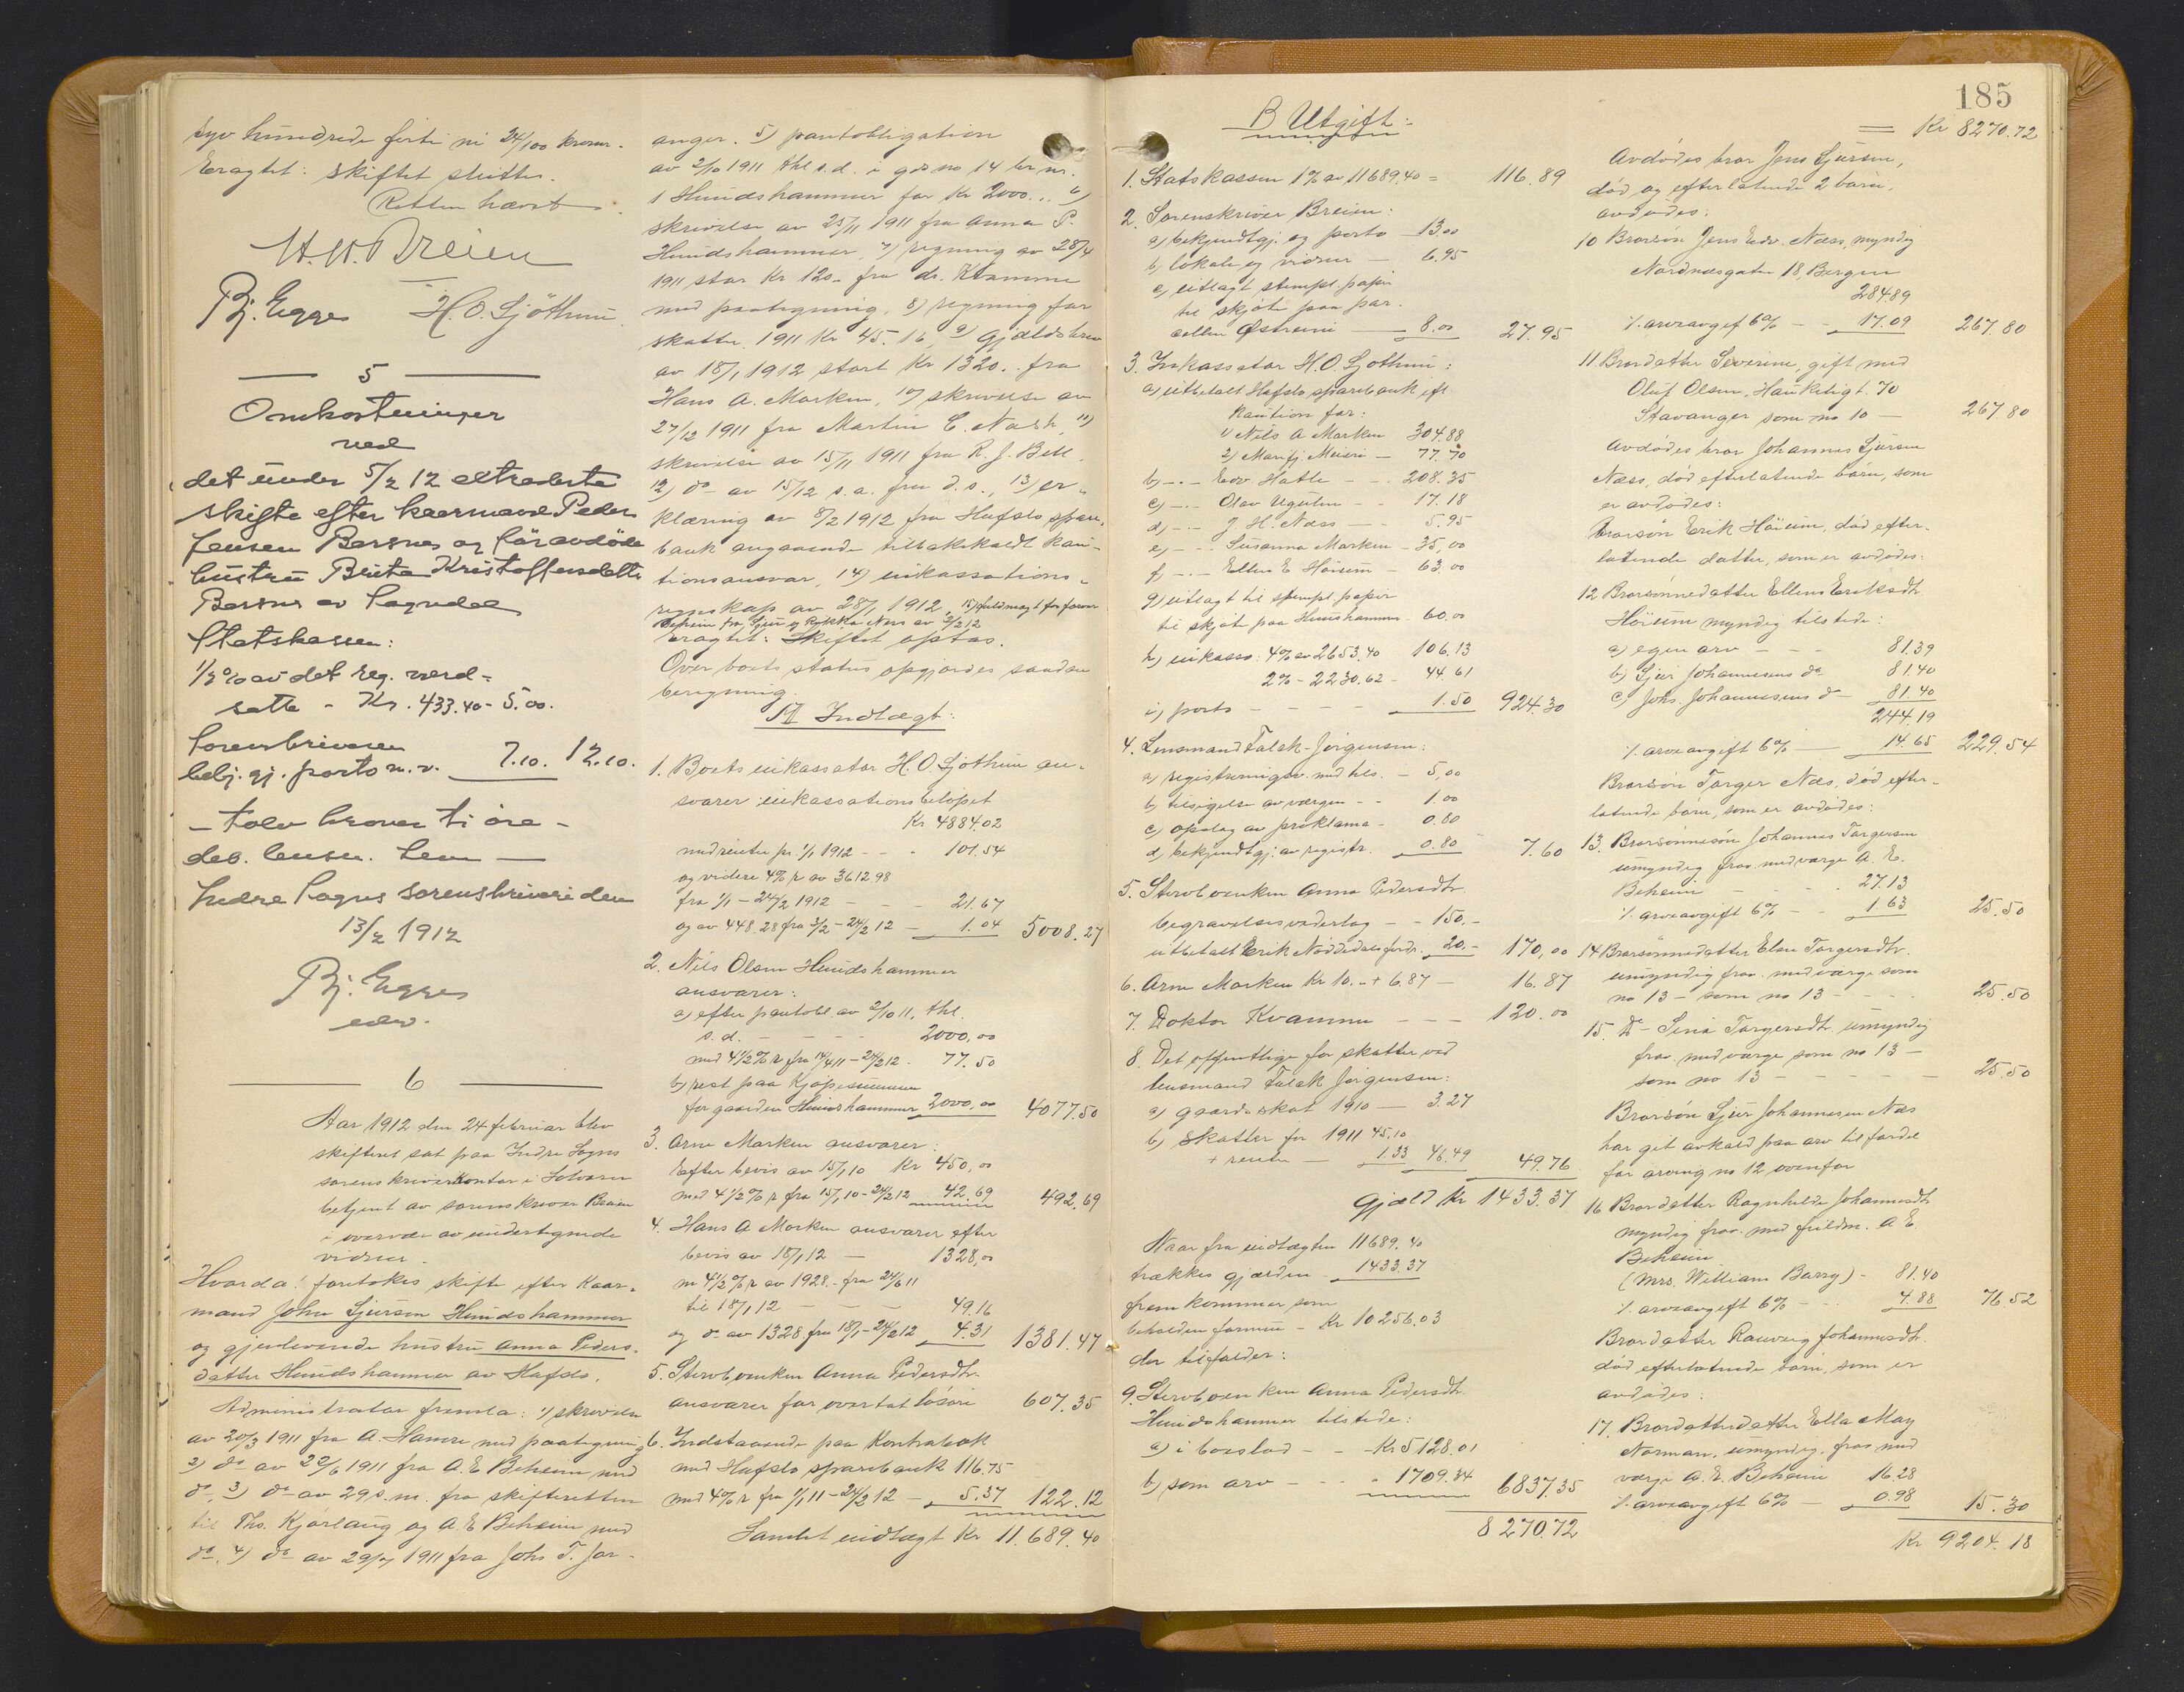 syv hundrede firti ni 24/100 kroner.
Eragtet: skiftet sluttes.
Retten hævet
H.H. Breien
Bj. Egge H.O. Sjöthun
5
Omkostninger
ved
det under 5/2 12 extraderte
skifte efter kaarmand Peder
Jensen Borsnes og föravdöde
hustru Brita Kristoffersdatter
Borsnes av Sogndal
Statskassen:
1/2% av det reg. værd-
satte - Kr. 433.40 - 5.00.
Sorenskriveren
bekj. gj. porto m. v. 7.10. 12.10.
- tolv kroner ti öre -
deb. lensm. Lem -
Indre Sogns sorenskriveri den
13/2 1912
Bj. Egge
edv.
6
Aar 1912 den 24 februar blev
skifteret sat paa Indre Sogns
sorenskriverkontor i Solvorn
betjent av sorenskriver Breien
i overvær av undertegnede
vidner.
Hvorda: foretokes skifte efter Kaar-
mand John Sjursen Hundshammer
og gjenlevende hustru Anna Peders-
datter Hundshammer av Hafslo.
Administrator fremla: 1) skrivelse
av 20/3 1911 fra A. Hamre med paategning
2) do av 22/6 1911 fra A.E. Beheim med
do, 3) do av 29 s.m. fra skifteretten
til Ths. Kjørlaug og A.E. Beheim med
do, 4) do av 29/7 1911 fra Johs T. Jor-
anger. 5) pantobligation
av 2/10 1911 thl. s.d. i g.no 14 br.nr.
1 Hundshammer for Kr 2000.. 6)
skrivelse av 25/11 1911 fra Anna P.
Hundshammer, 7) regning av 28/4
1911 stor Kr 120.- fra dr. Kvamme
med paategning, 8) regning for
skatter 1911 Kr 45.16, 9) Gjældsbrev
av 18/1 1912 stort Kr 1320.. fra
Hans A. Morken, 10) skrivelse av
27/12 1911 fra Martin C. Nash, 11)
skrivelse av 15/11 1911 fra R. J. Bell.
12) do av 15/12 s.a. fra d.s., 13) er-
klæring av 8/2 1912 fra Hafslo spare-
bank angaaende tilbakekaldt kau-
tionsansvar, 14) inkassations-
regnskap av 28/1 1912, 15) fuldmagt for
Beheim fra Sjur Næs av 2/2 12
Eragtet: Skiftet optas.
Over boets status opgjordes saadan
beregning.
A Indtægt:
1. Boets inkassator H.O. Sjöthun an-
svarer inkassationsbeløpet
Kr 4884.02
med renter pr. 1/1 1912 - - 101.54
og videre 4% r av 3612.98
fra 1/1 - 24/2 1912 - - 21.67
og av 448.28 fra 3/2 - 24/2 12 - 1.04 5008.27
2. Nils Olsen Hundshammer
ansvarer:
a) efter pantobl av 2/10 11, thl.
s.d. - - - 2000,00
med 4 1/2% r fra 14/4 11 - 24/2 12 - 77.50
b) rest paa Kjøpesummen
for gaarden Hundshammer 2000,00 4077.50
3. Arne Morken ansvarer:
Efter bevis av 15/1 10 Kr 450,00
med 4 1/2% r fra 15/1 10 - 24/2 12 42.69 492.69
4. Hans A Morken ansvarer efter
bevis av 18/1 12 - 1328,00
m 4 1/2% r av 1928.- fra 24/6 11
til 18/1 12 - - - 49.16
og do av 1328 fra 18/1 - 24/2 12 4.31 1381.47
5. Sterboenken Anna Pedersdtr.
ansvarer for overtat løsøre 607.35
6. Indestaaende paa Kontrabok
med Hafslo sparebank 116.75
med 4% r fra 1/1 11 - 24/2 12 - 5.37 122.12
Samlet indtægt Kr 11.689.40
B Utgift:
1. Statskassen 1% av 11689.40 = 116.89
2. Sorenskriver Breien:
a) bekjendtgj. og porto - 13.00
b) lokale og vidner - 6.95
c) utlagt stempl. papir
til skjøte paa par-
cellen Østreim - 8.00 27.95
3. Inkassator H.O. Sjøthun:
a) utbetalt Hafslo sparebank eft.
Kaution for:
1) Nils A Morken 304.88
2) Marifj Meieri - 77.70
b) -..- Edv. Hatle - - 208.35
c) -..- Olav Ugulen - - 17.18
d) -..- J. H. Næss - - 5.95
e) -..- Susanna Morken - 35,00
f) -..- Ellen E Høium - 63.00
g) utlagt til stempl. papir
til skjøte paa Hundshammer 60.00
h) inkasso: 4% av 2653.40 106.13
2% - 2230.62 - 44.61
i) porto - - - - 1.50 924.30
4. Lensmand Falck-Jørgensen:
a) registreringsv. med tils. - 5,00
b) tilsigelse av værgen - - 1.00
c) opslag av proklama - 0.80
d) bekjendtgj. av registr. - 0.80 7.60
5. Sterboenken Anna Pedersdtr.
begravelsesvederlag - - 150.-
utbetalt Erik fordr. 20.- 170,00
6. Arne Morken Kr 10.- + 6.87 - 16.87
7. Doktor Kvamme - - - 120.00
8. Det offentlige for skatter ved
lensmand Falck Jørgensen:
a) gaardsskat 1910 - 3.27
b) skatter for 1911 45,16
+ renter - 1.33 46.49 49.76
Gjæld Kr 1433.37
Naar fra indtægten 11689.40
trækkes gjælden 1433.37
fremkommer som
beholden formue - Kr 10256.03
der tilfalder:
9. Sterboenken Anna Pedersdtr.
Hundshammer tilstede:
a) i boeslod - - - Kr 5128.01
b) som arv - - - " 1709.34 6837.35
8270.72
185
= Kr 8270.72
Avdødes bror Jens Sjursen,
død og efterlatende 2 barn,
avdødes:
10 Brorsøn Jens Edv. Næss, myndig
Nordnæsgaten 18, Bergen
284.89
% arveavgift 6% - - 17.09 267.80
11 Brordatter Severine, gift med
Oluf Olsen, Haukeligt. 70
Stavanger som no 10 - 267.80
Avdødes bror Johannes Sjursen
Næss, død efterlatende barn, som
er avdødes:
Brorsøn Erik Høium, død efter-
latende datter, som er avdødes:
12 Brorsønnedatter Ellen Eriksdtr.
Høium myndig tilstede:
a) egen arv - - - 81.39
b) Sjur Johannesens do 81.40
c) Johs. Johannesens do - 81.40
244.19
% arveavgift 6% - 14.65 229.54
Brorsøn Torger Næs, død efter-
latende barn, som er avdødes:
13. Brorsønnesøn Johannes Torgersen
umyndig frav. med værge A. E.
Beheim - - - 27.13
% arveavgift 6% - - 1.63 25.50
14 Brorsønnedatter Elen Torgersdtr.
umyndig frav. med værge som
no 13 - som no 13 - - - 25.50
15. Do - Sina Torgersdtr. umyndig
frav. med værge som no 13 -
som no 13 - - - - - 25.50
Brorsøn Sjur Johannesen Næs
har git avkald paa arv til fordel
for arving no 12 ovenfor
16 Brordatter Ragnhilda Johannesdtr.
myndig frav. med fuldm. A E.
Beheim
(Mrs. William Barry) - 81.40
% arveavgift 6% - - 4.88 76.52
Brordatter Rauveig Johannesdtr.
død efterlatende barn, som er
avdødes:
17. Brordatterdatter Ella May
Norman, umyndig, frav. med
værge A. E. Beheim 16.28
% arveavgift 6% - 0.98 15.30
Kr 9204.18